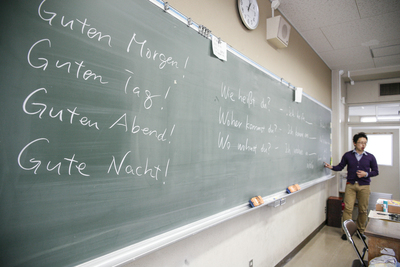 Guten Morgen!
Guten Tag!
Guten Abend!
Gute Nacht!
Wie heißt du? - Ich
Woher kommst du? - Ich
Wo wohnst du? - Ich